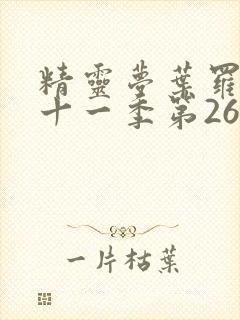 精靈夢葉羅
十一季第26
一片枯葉